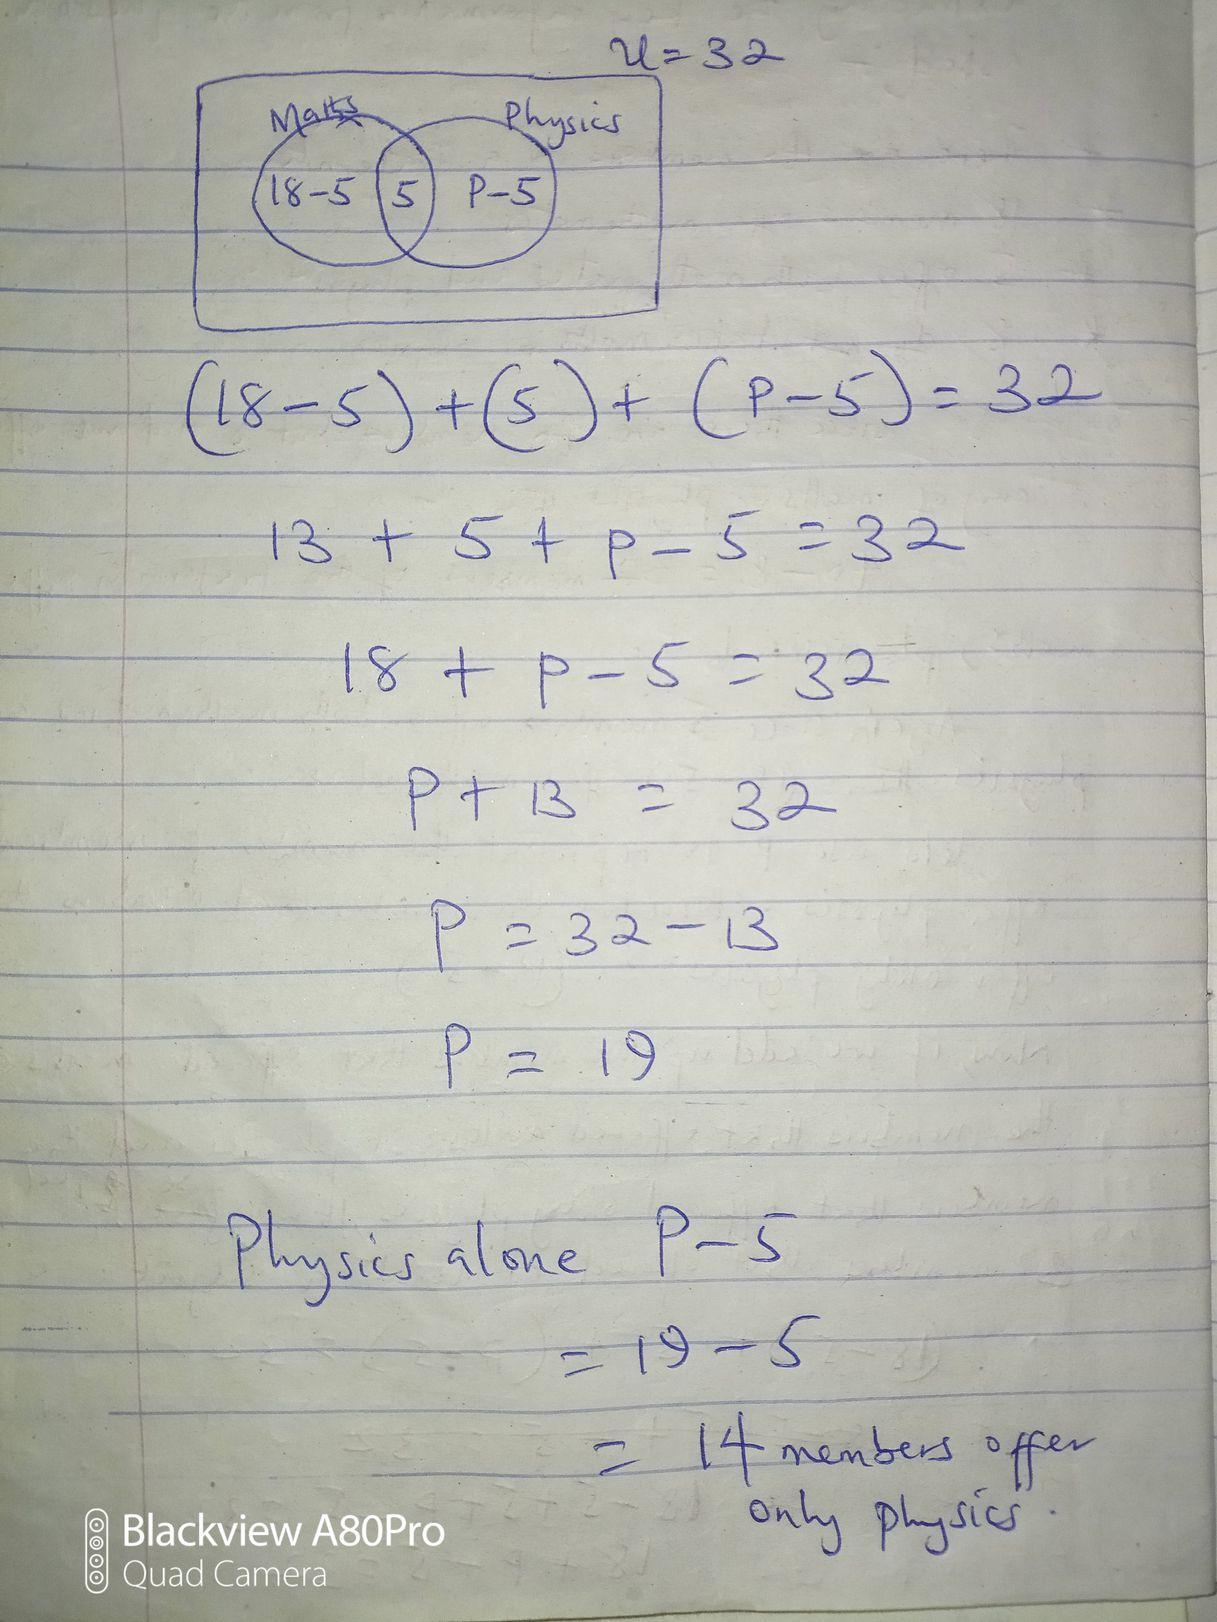 U = 32
Maths Physics
18-5 5 P-5
(18-5)+(5)+(P-5)=32
13 + 5 + p - 5 = 32
18 + p - 5 = 32
P + 13 = 32
P = 32 - 13
P = 19
Physics alone P-5
= 19-5
= 14 members offer
only physics.
Blackview A80Pro
Quad Camera